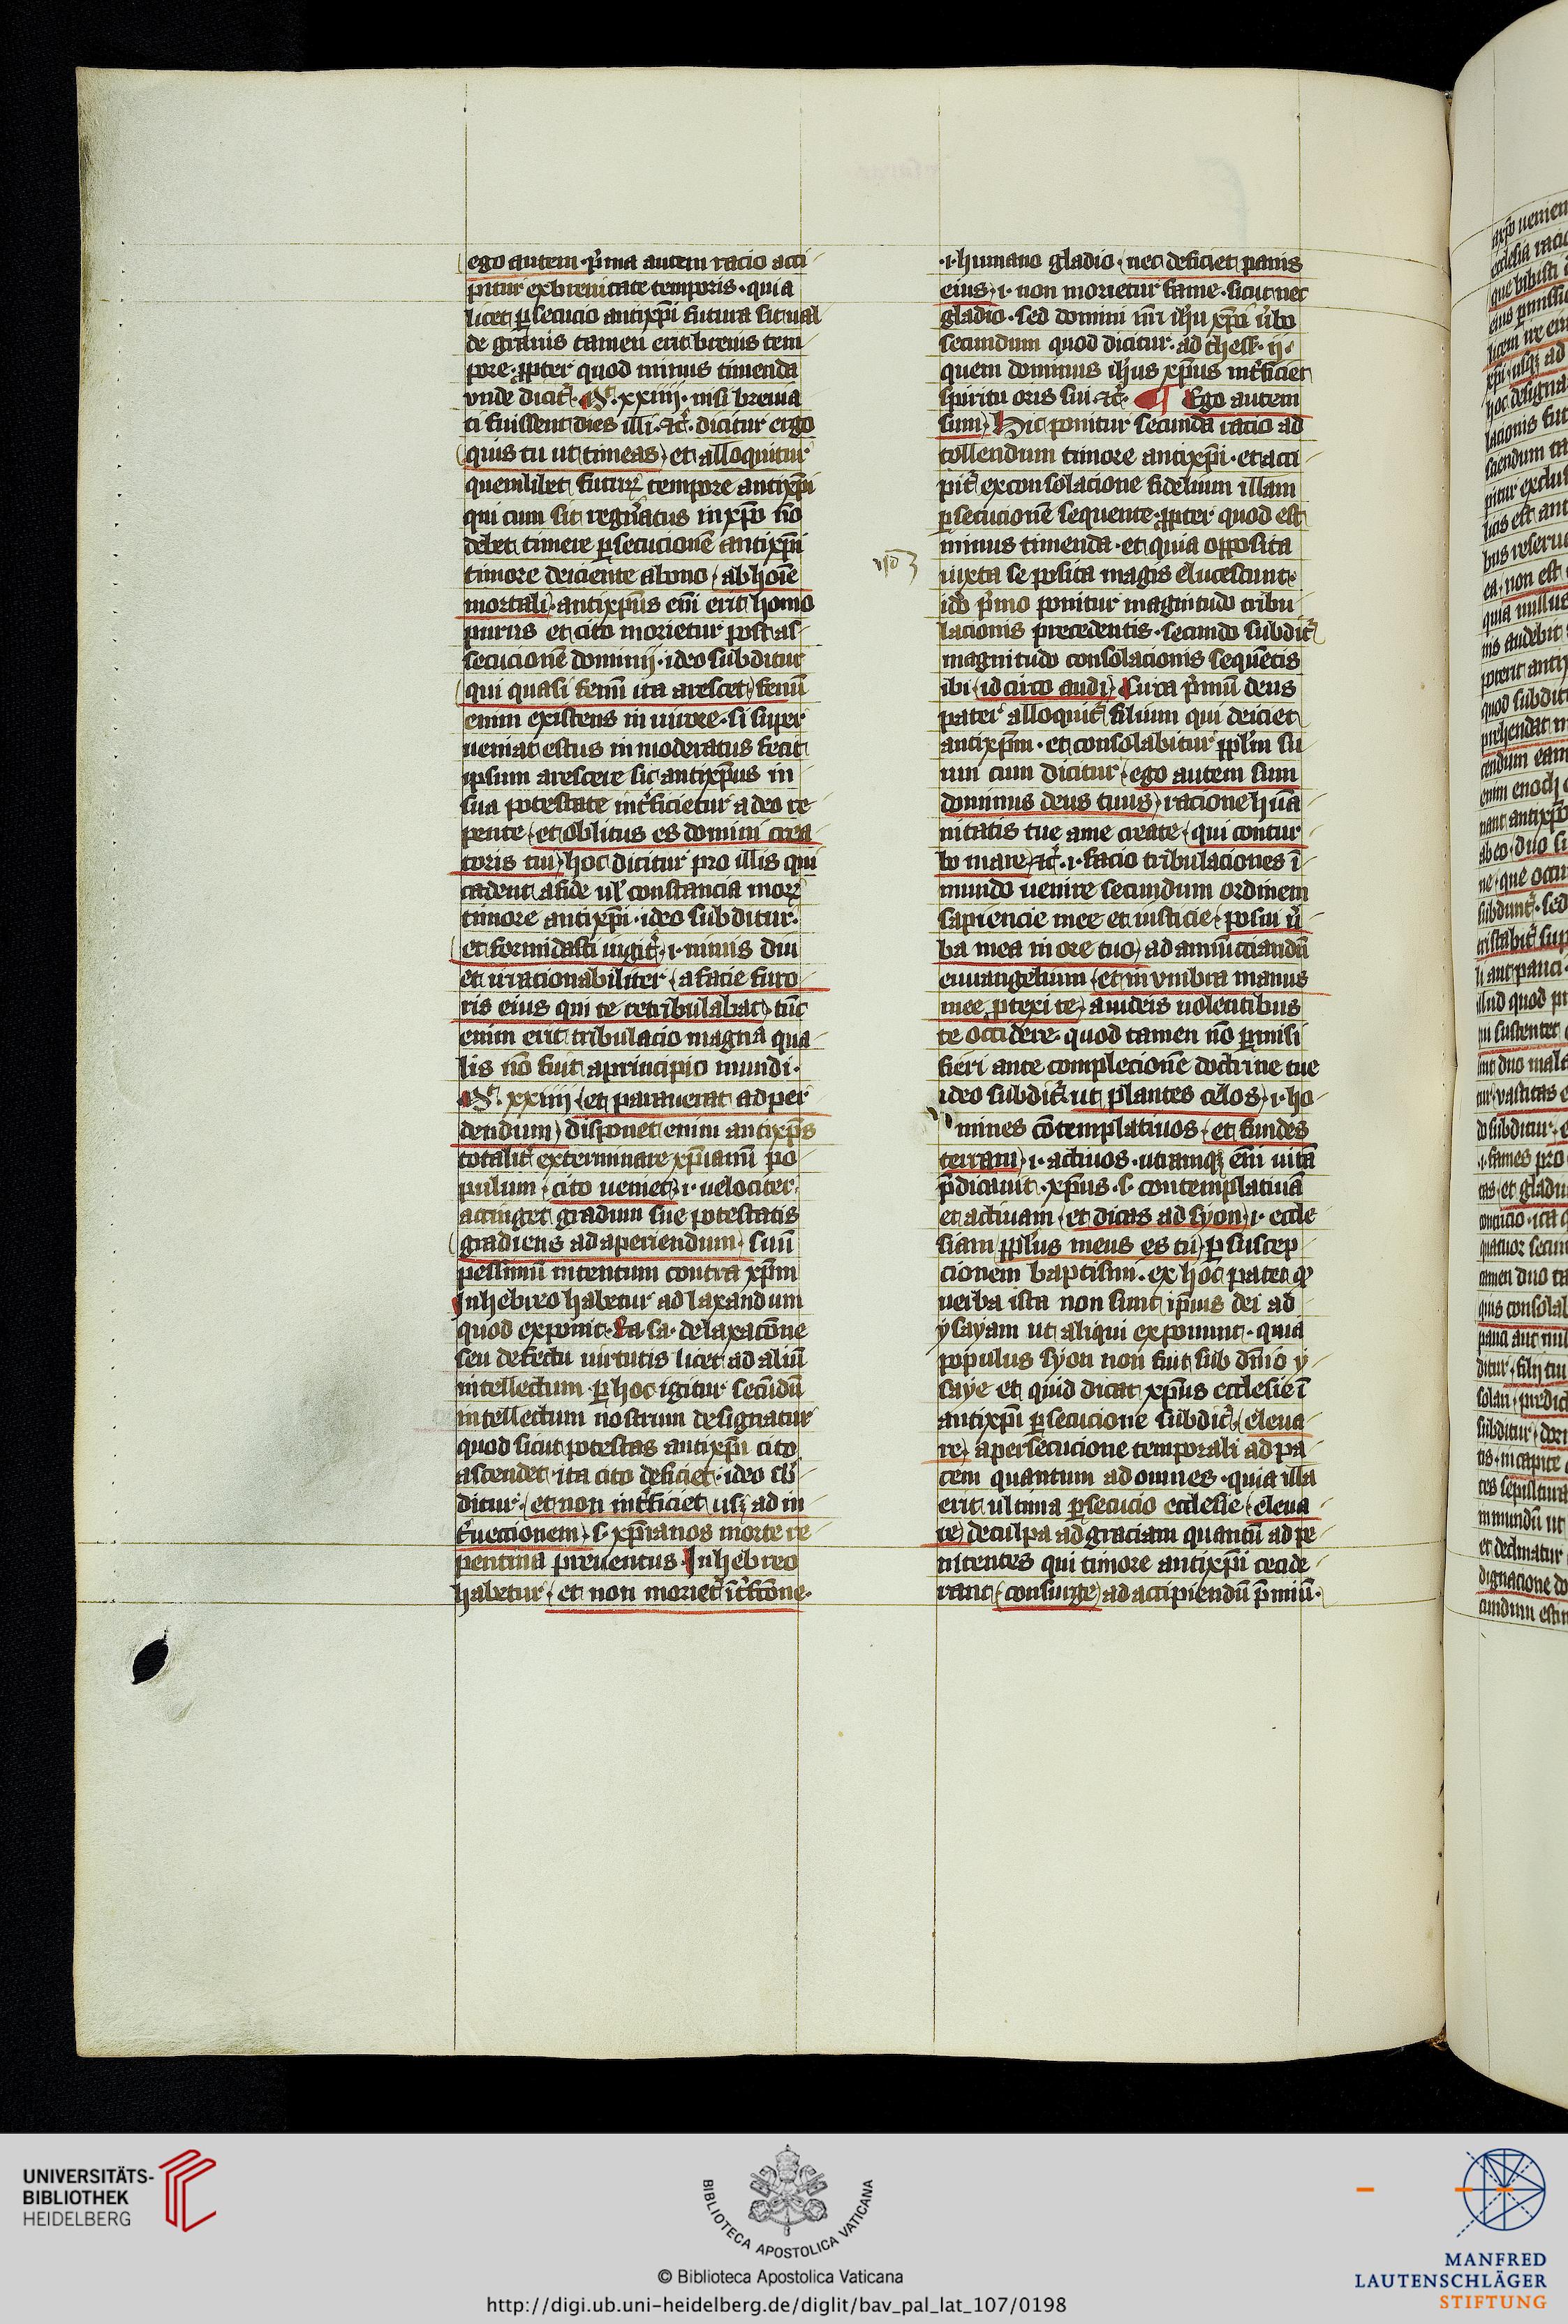 ego autem · p̄ma autem racio acci
pitur ex breuitate temporis · quia
licet ꝑsecucio antixp̄i futura sit ual
de grauis tamen erit breuis tem
pore · ꝓpter quod minus timenda
vnde dicit̾ · xxiiii · nisi breuia
ti fuissent dies illi · ⁊c̾ · dicitur ergo
quis tu ut timeas et alloquitur
quemlibet futuꝝ tempore antixp̄i
qui cum sit regn̾atus in xp̄o nō
debet timere ꝑsecucionē antixp̄i
timore deiciente a bono ab hoīe
mortali · antixp̄us em̄ erit homo
purus et cito morietur post as
secucionē dominij · ideo subditur
qui quasi fenū ita arescet fenū
enim existens in uirore · si super
ueniat estus in moderatus fecit
ipsum arescere sic antixp̄us in
sua potestate int̾ficietur a deo re
pente et oblitus es domini crea
toris tui hoc dicitur pro illis qui
cadent a fide ul̾ constancia moꝝ
timore antixp̄i · ideo subditur ·
et formidasti iugit̾ · i · nimis diu
et irracionabiliter a facie furo
ris eius qui te tribulabat tūc
enim erit tribulacio magna qua
lis nō fuit a principio mundi ·
xxiiii et parauerat ad per
dendum disponet enim antixp̄s
totalit̾ exterminare xp̄ianū po
pulum cito ueniet · i · uelociter
attinget gradum sue potestatis
gradiens ad aperiendum suū
pessimū intentum contra xp̄m
In hebreo habetur ad laxandum
quod exponit · Ra · sa · de laxacōne
seu defectu uirtutis licet ad aliū
intellectum · ꝑ hoc igitur secūdū
intellectum nostrum designatur
quod sicut potestas antixp̄i cito
ascendet · ita cito deficiet · ideo sb̾
ditur · et non int̾ficiet usqꝫ ad in
t̾neccionem · s · xp̄ianos morte re
pentina preuentus · In hebreo
habetur et non moriet̾ īt̾fc̄one ·
· i · humano gladio nec deficiet panis
eius · i · non morietur fame · sicut nec
gladio · sed domini nr̄i ihū xp̄i u̾bo
secundum quod dicitur · ad thess · ii ·
quem dominus ih̄us xp̄us int̾ficiet
spiritu oris sui · ⁊c̾ · ¶ Ego autem
sum Hic ponitur secunda racio ad
tollendum timore antixp̄i · et acci
pit̾ ex consolacione fidelium illam
ꝑsecucionē sequente · ꝓpter quod est
minus timenda · et quia opposita
iuxta se posita magis elucescunt ·
ido p̾mo ponitur magnitudo tribu
lacionis precedentis · secundo subdit̾
magnitudo consolacionis sequētis
ibi id circo audi Circa p̾mū deus
pater alloquit̾ filium qui deiciet
antixp̄m · et consolabitur ppl̄m su
um cum dicitur ego autem sum
dominus deus tuus racione hūa
nitatis tue a me create qui contur
bo mare ⁊c̾ · i · facio tribulaciones ī
mundo uenire secundum ordinem
sapiencie mee et iusticie posui u̾
ba mea in ore tuo ad annūciandū
euuangelium et in vmbra manus
mee ꝓtexi te a iudeis uolentibus
te occidere · quod tamen nō ꝑmisi
fieri ante complecionē doctrine tue
ideo subdit̾ ut plantes celos · i · ho
mines cōtemplatiuos et fundes
terram · i · actiuos · utramqꝫ em̄ uitā
p̄dicauit · xp̄us · s · contemplatiuā
et actiuam et dicas ad syon · i · eccle
siam ppl̄us meus es tu ꝑ suscep
cionem baptismi · ex hoc patet ꝙ
uerba ista non sunt ip̄ius dei ad
ysayam ut aliqui exponunt · quia
populus syon non fuit sub dn̄io y
saye et quid dicat xp̄us ecclesie ī
antixp̄i ꝑsecucione subdit̾ eleua
re a persecucione temporali ad pa
cem quantum ad omnes · quia illa
erit ultima ꝑsecucio ecclesie eleua
re de culpa ad graciam quantū ad pe
nitentes qui timore antixp̄i cecide
rant consurge ad accipiendū p̄miū ·
UNIVERSITÄTS-
BIBLIOTHEK
HEIDELBERG
BIBLIOTECA APOSTOLICA VATICANA
© Biblioteca Apostolica Vaticana
http://digi.ub.uni-heidelberg.de/diglit/bav_pal_lat_107/0198
MANFRED
LAUTENSCHLÄGER
STIFTUNG